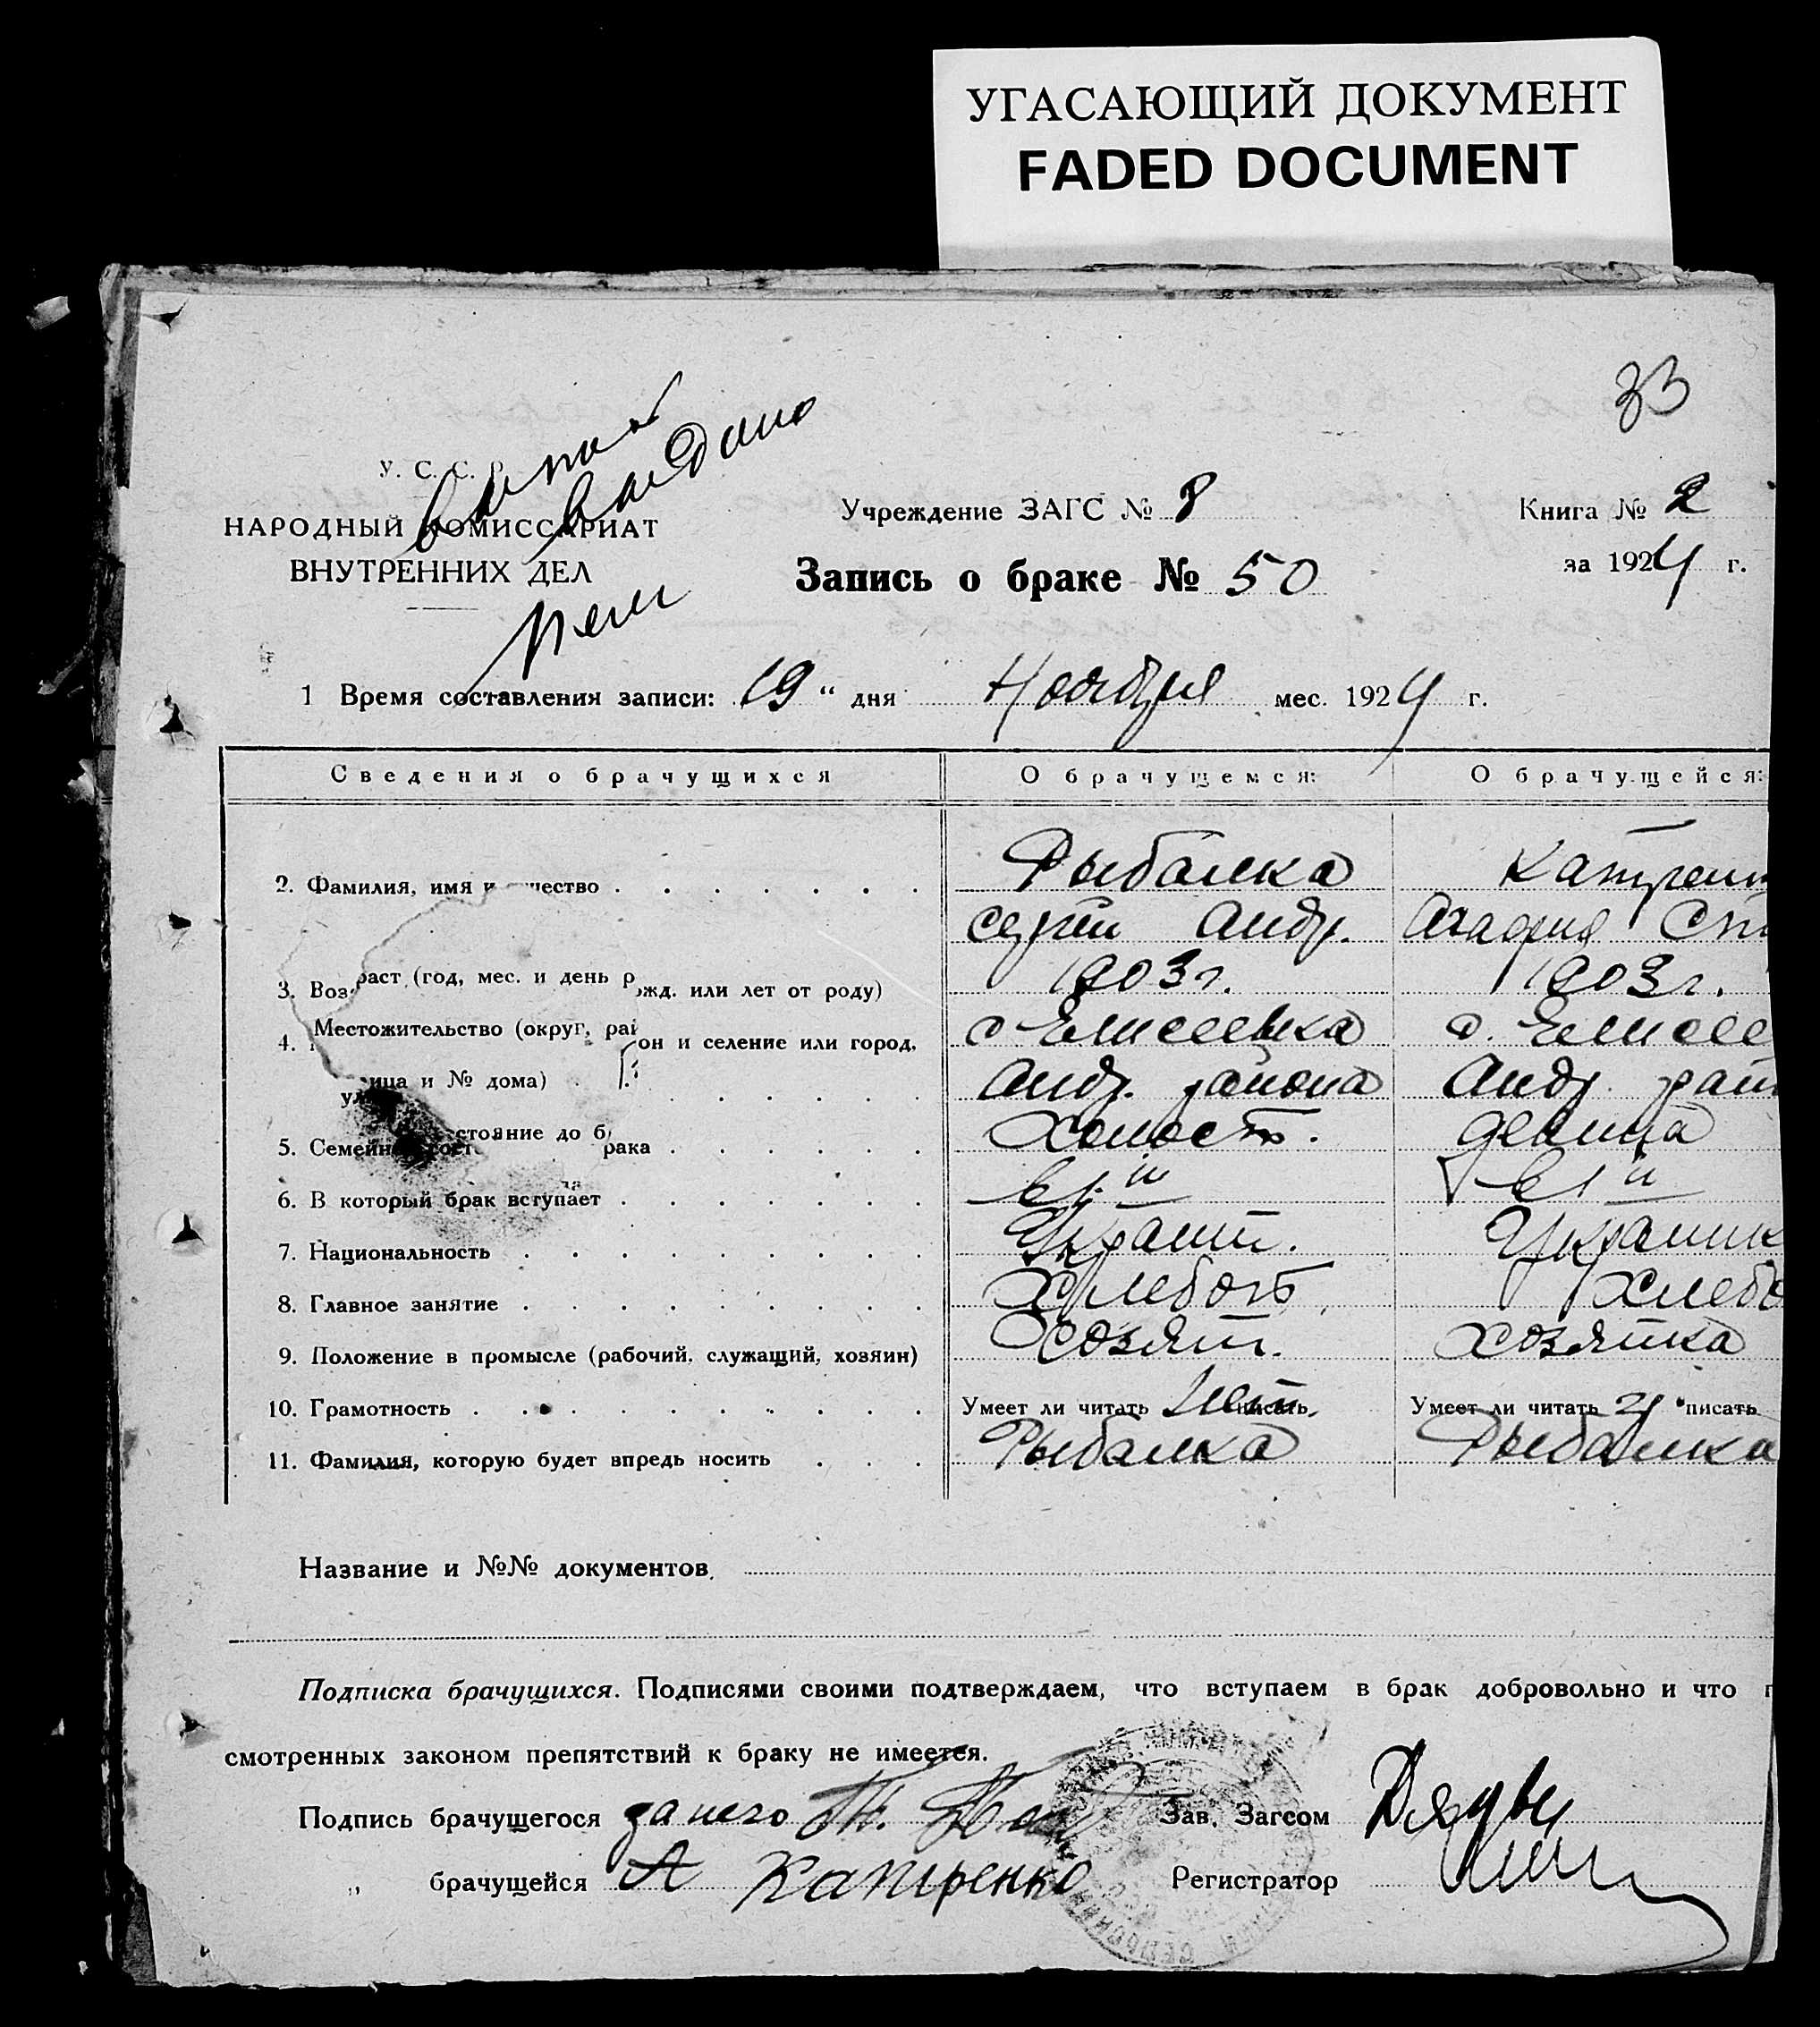 УГАСАЮЩИЙ ДОКУМЕНТ
FADED DOCUMENT
33
У. С. С. Р.
НАРОДНЫЙ КОМИССАРИАТ
ВНУТРЕННИХ ДЕЛ
Учреждение ЗАГС № 8
Книга № 2
Запись о браке № 50
за 1924 г.
1 Время составления записи: 19 " дня Ноября мес. 1924 г.
Сведения о брачущихся О брачущемся: О брачущейся:
2. Фамилия, имя и чество Рыбалка Капрен
Сергей Андр. Агафия
3. Возраст (год, мес. и день рожд. или лет от роду) 1903 г. 1903 г.
4. Местожительство (округ, район и селение или город, с Елисеевка с. Елисее
улица и № дома) Андр. района Андр. рай
5. Семейное состояние до брака Холост. девица
6. В который брак вступает в 1.й в 1 й
7. Национальность Украин. Украинк
8. Главное занятие Хлебоп. Хлебо
9. Положение в промысле (рабочий, служащий, хозяин) Хозяин. Хозяйка
10. Грамотность Умеет ли читать нет писать Умеет ли читать писать
11. Фамилия, которую будет впредь носить Рыбалка Рыбалка
Название и №№ документов
Подписка брачущихся. Подписями своими подтверждаем, что вступаем в брак добровольно и что п
смотренных законом препятствий к браку не имеется.
Подпись брачущегося за него Зав. Загсом
„ брачущейся А Капренко Регистратор